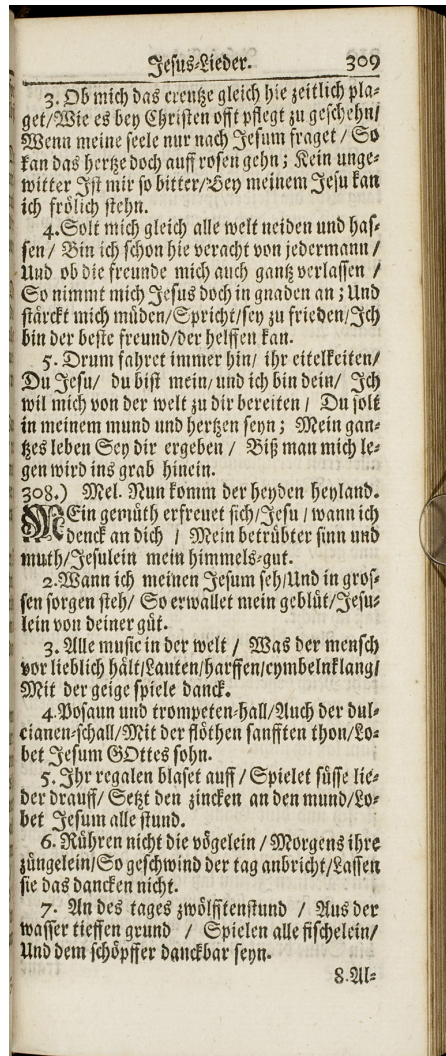 Jesus-Lieder. 309
3. Ob mich das creutze gleich hie zeitlich pla-
get/Wie es bey Christen offt pflegt zu geschehn/
Wenn meine seele nur nach Jesum fraget / So
kan das hertze doch auff rosen gehn; Kein unge-
witter Ist mir so bitter/Bey meinem Jesu kan
ich frölich stehn.
4. Solt mich gleich alle welt neiden und has-
sen / Bin ich schon hie veracht von jedermann /
Und ob die freunde mich auch gantz verlassen /
So nimmt mich Jesus doch in gnaden an; Und
stärckt mich müden/Spricht/sey zu frieden/Ich
bin der beste freund/der helffen kan.
5. Drum fahret immer hin/ ihr eitelkeiten/
Du Jesu/ du bist mein/und ich bin dein/ Ich
wil mich von der welt zu dir bereiten / Du solt
in meinem mund und hertzen seyn; Mein gan-
tzes leben Sey dir ergeben / Biß man mich le-
gen wird ins grab hinein.
308.) Mel. Nun komm der heyden heyland.
MEin gemüth erfreuet sich/Jesu/wann ich
denck an dich / Mein betrübter sinn und
muth/Jesulein mein himmels-gut.
2. Wann ich meinen Jesum seh/Und in gros-
sen sorgen steh/ So erwallet mein geblüt/Jesu-
lein von deiner güt.
3. Alle music in der welt / Was der mensch
vor lieblich hält/Lauten/harffen/cymbelnklang/
Mit der geige spiele danck.
4. Posaun und trompeten-hall/Auch der dul-
cianen-schall/Mit der flöthen sanfften thon/Lo-
bet Jesum GOttes sohn.
5. Ihr regalen blaset auff / Spielet süsse lie-
der drauff/ Setzt den zincken an den mund/Lo-
bet Jesum alle stund.
6. Rühren nicht die vögelein / Morgens ihre
züngelein/So geschwind der tag anbricht/Lassen
sie das dancken nicht.
7. An des tages zwölfftenstund / Aus der
wasser tieffen grund / Spielen alle fischelein/
Und dem schöpffer danckbar seyn.
8. Al-